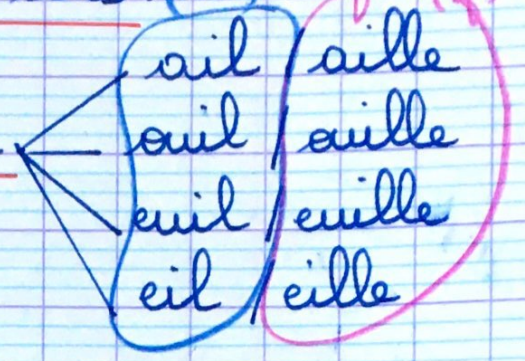 ail / aille
ouil / ouille
euil / euille
eil / eille